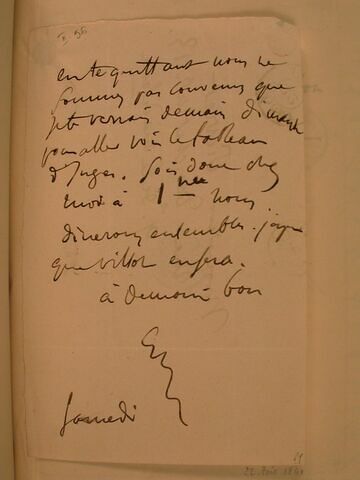 en te quittant nous ne
sommes pas convenus que
je te verrais demain dimanche
pour aller voir le tableau
d'Ingres. Sois donc chez
moi à 1 hre nous
dinerons ensembles. j'espère
que Villot en fera.
à demain bon
Eug
Samedi